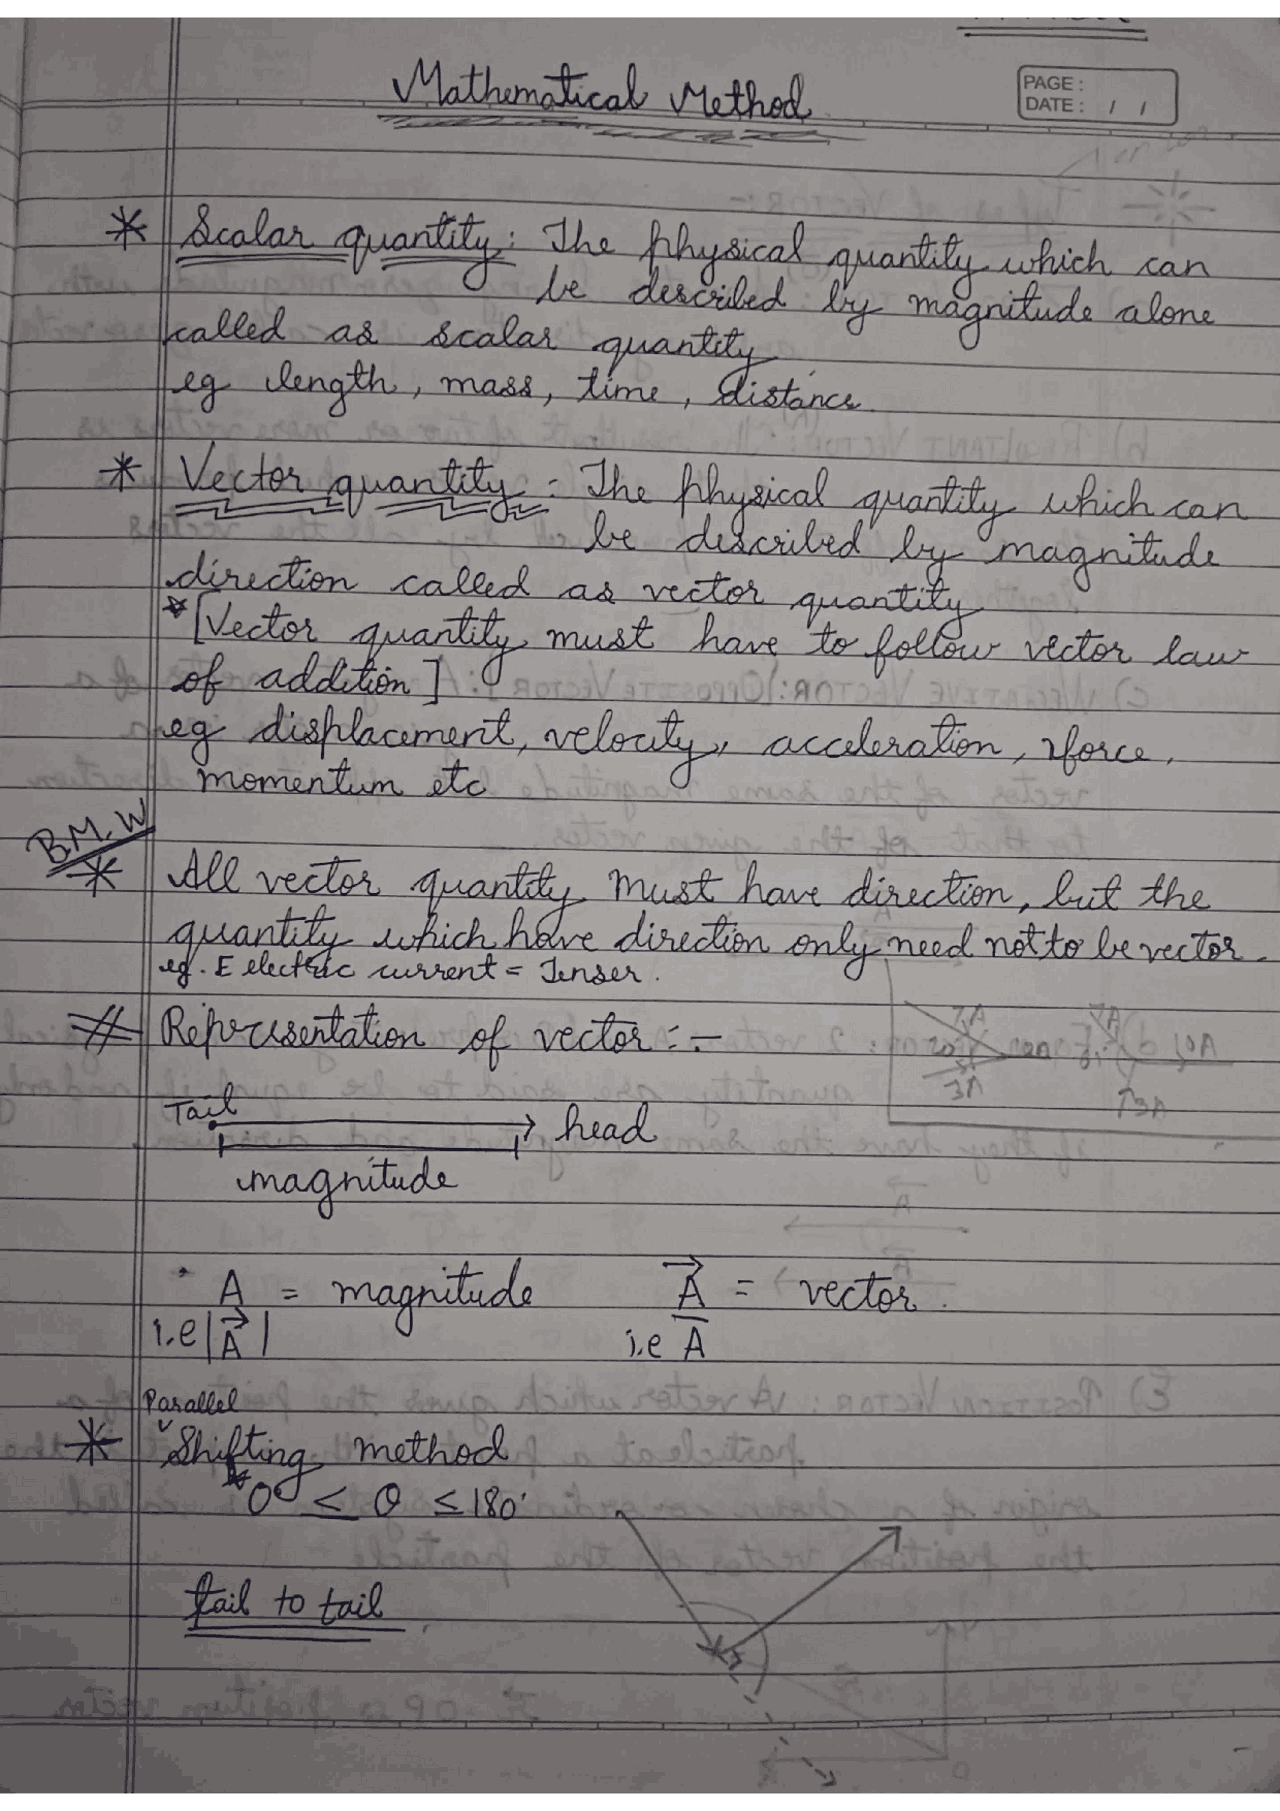 Mathematical Method
PAGE:
DATE: / /
* Scalar quantity: The physical quantity which can
be described by magnitude alone
called as scalar quantity
eg length, mass, time, distance
* Vector quantity: The physical quantity which can
be described by magnitude
direction called as vector quantity
*[Vector quantity must have to follow vector law
of addition]
eg displacement, velocity, acceleration, force,
momentum etc
B.M.W
* All vector quantity must have direction, but the
quantity which have direction only need not to be vector.
eg. E electric current = Tenser.
# Representation of vector:-
7A 7A
3A
10A
↑3A
Tail
head
magnitude
A = magnitude A⃗ = vector.
i.e |A⃗| i.e A̅
Parallel
* Shifting method
*0° ≤ θ ≤ 180°
tail to tail